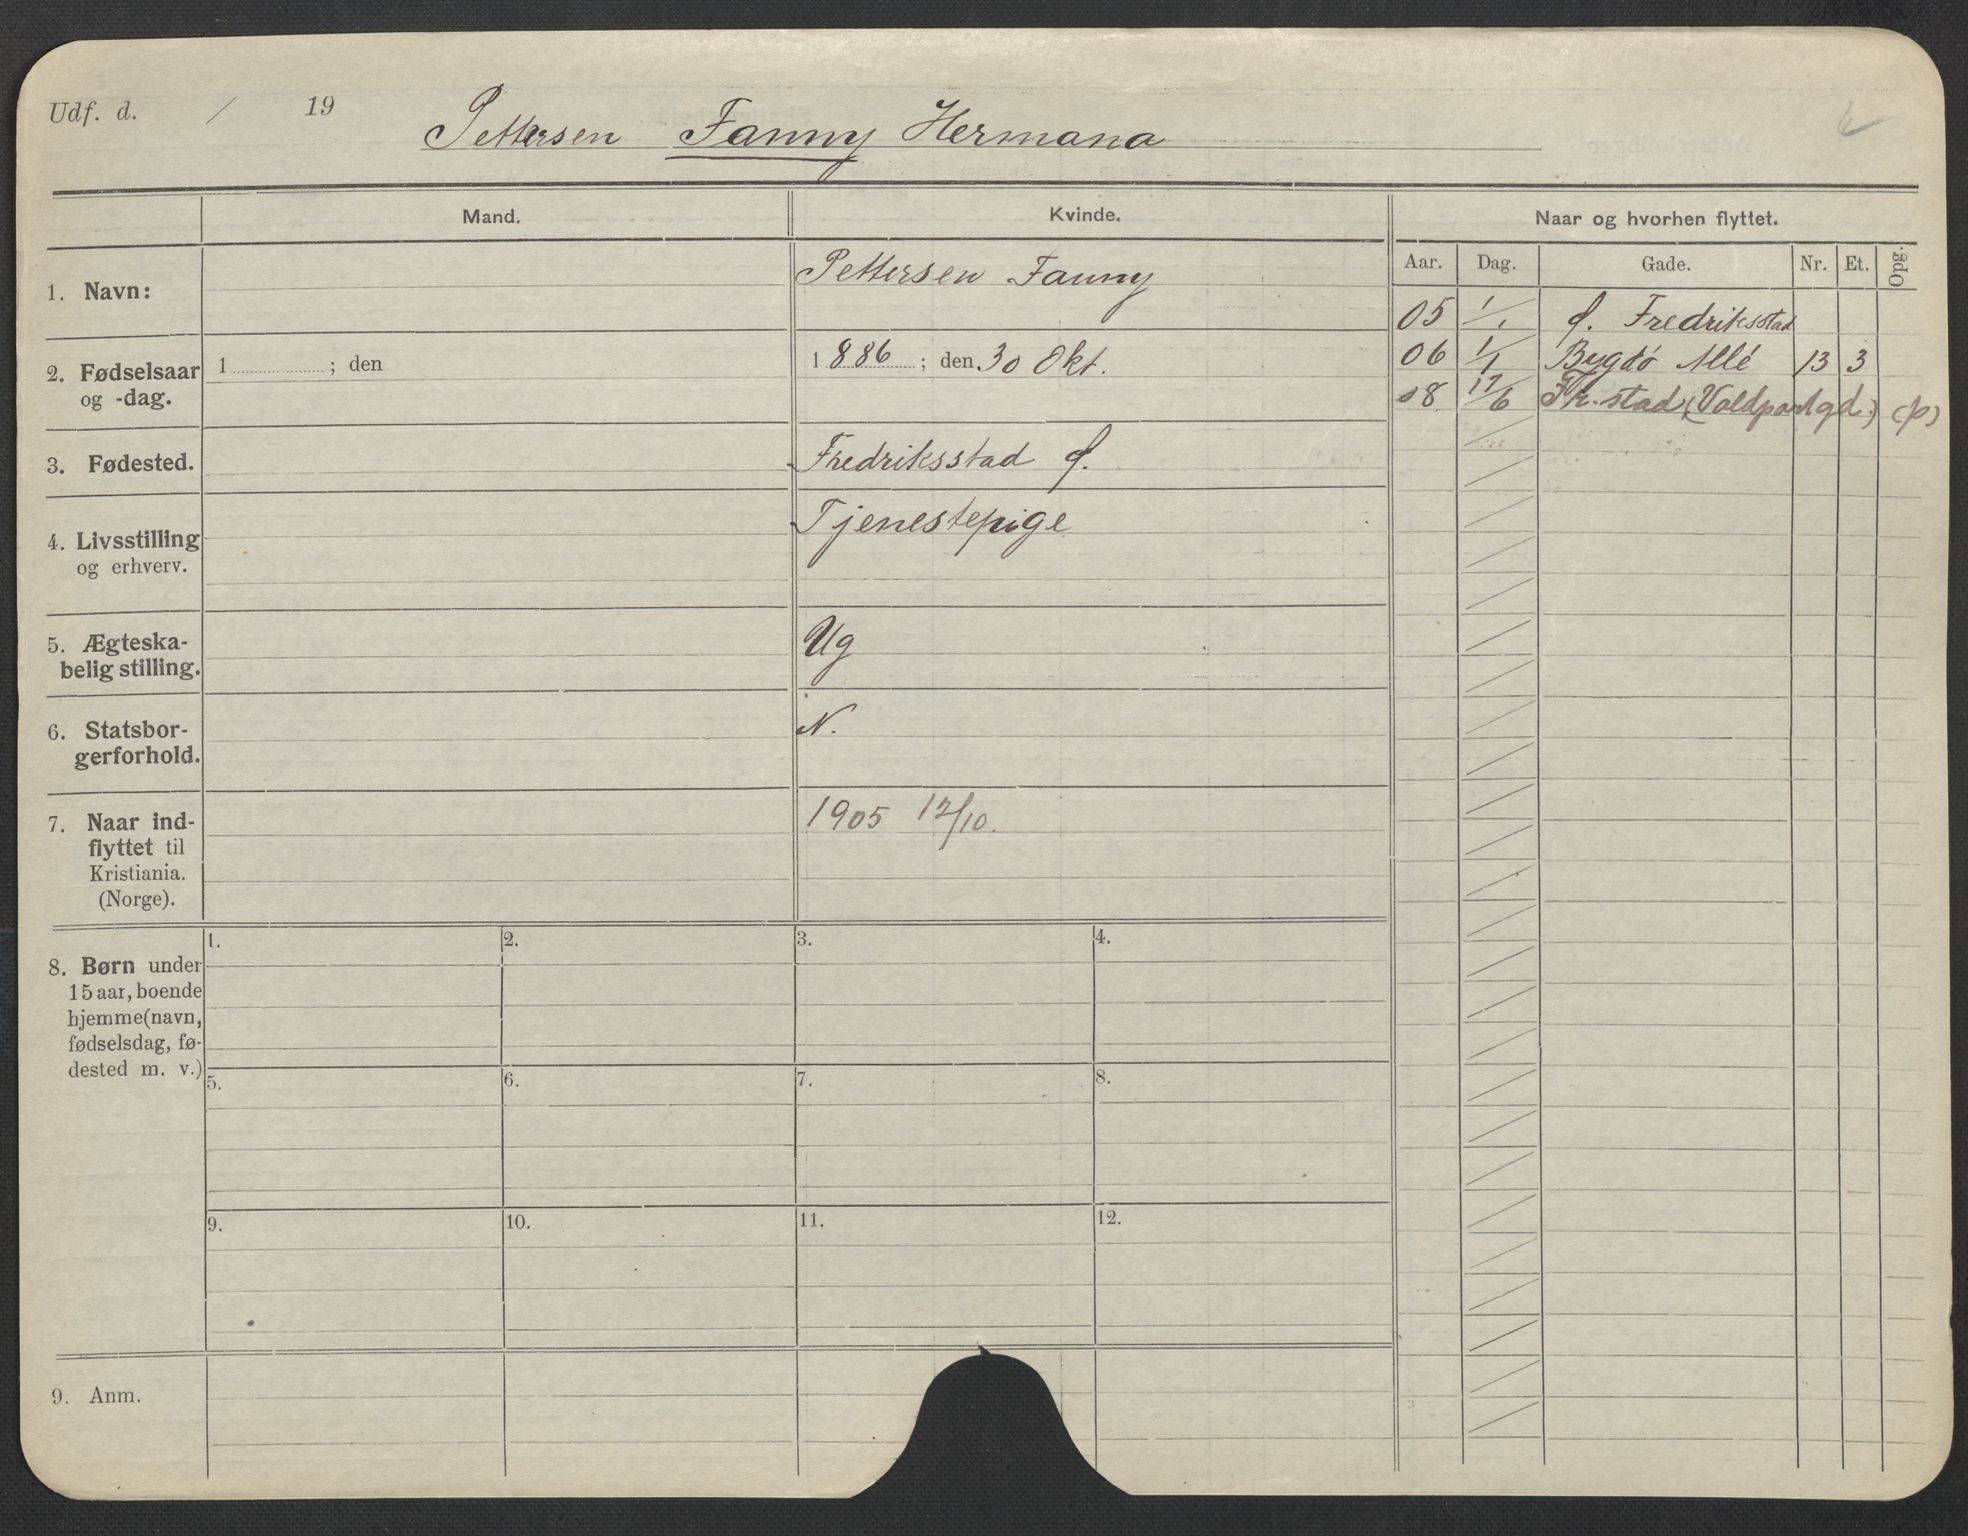 Udf. d. / 19
Pettersen Fanny Hermana
Mand.
Kvinde.
Naar og hvorhen flyttet.
Aar. Dag. Gade. Nr. Et. Opg.
1. Navn:
Pettersen Fanny
05 1/1 f. Fredriksstad
2. Fødselsaar
og -dag.
1 ; den
1886 ; den 30 Okt.
06 1/1 Bygdø Allé 13 3
08 17/6 Fr.stad (Voldportgd.) (p)
3. Fødested.
Fredriksstad f.
4. Livsstilling
og erhverv.
Tjenestepige
5. Ægteska-
belig stilling.
Ug
6. Statsbor-
gerforhold.
N.
7. Naar ind-
flyttet til
Kristiania.
(Norge).
1905 12/10.
8. Børn under
15 aar, boende
hjemme (navn,
fødselsdag, fø-
dested m. v.)
1. 2. 3. 4.
5. 6. 7. 8.
9. 10. 11. 12.
9. Anm.